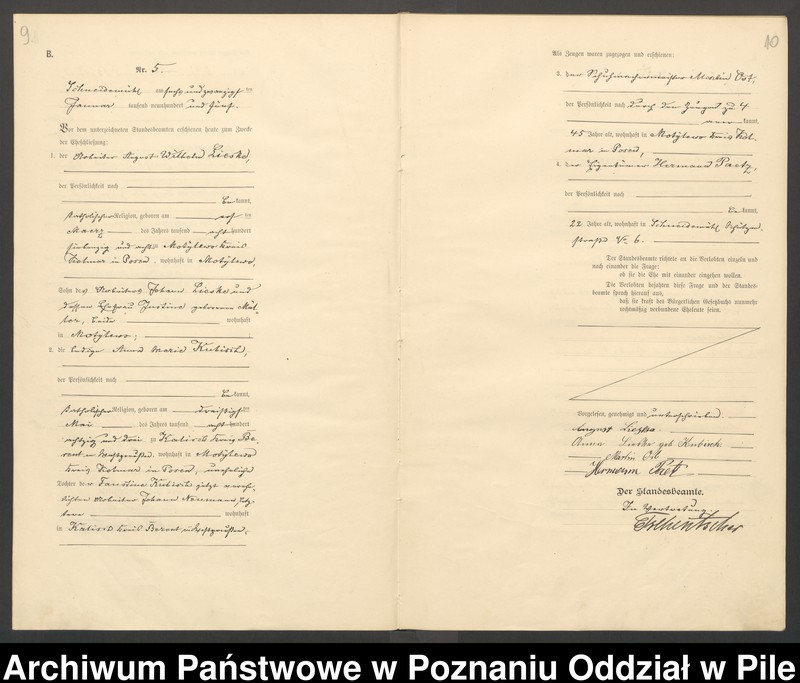 9
B.
Nr. 5.
Schneidemühl, am sechsundzwanzigsten
Januar tausend neunhundert und fünf.
Vor dem unterzeichneten Standesbeamten erschienen heute zum Zwecke
der Eheschließung:
1. der Arbeiter August Wilhelm Lieske,
der Persönlichkeit nach
be kannt,
katholischer Religion, geboren am ersten
Maerz des Jahres tausend acht hundert
und acht zu Motylewo Kreis
Kolmar in Posen, wohnhaft in Motylewo,
Sohn des Arbeiters Johann Lieske und
dessen Ehefrau Justine geborenen
beide wohnhaft
in Motylewo;
2. die ledige Anna Marie Kubisch,
der Persönlichkeit nach
be kannt,
katholischer Religion, geboren am dreißigsten
Mai des Jahres tausend acht hundert
achtzig und drei zu Kreis Be-
rent in Westpreußen, wohnhaft in Motylewo
Kreis Kolmar in Posen, uneheliche
Tochter der Faustine Kubisch jetzt vereh-
lichten Arbeiter Johann Neumann, letz-
tere wohnhaft
in Kreis Berent in Westpreußen.
10
Als Zeugen waren zugezogen und erschienen:
3. der Schuhmachermeister Martin Ost,
der Persönlichkeit nach durch den Zeugen zu 4
aner kannt,
45 Jahre alt, wohnhaft in Motylewo Kreis Kol-
mar in Posen,
4. der Eigentümer Hermann Paetz,
der Persönlichkeit nach
be kannt,
22 Jahre alt, wohnhaft in Schneidemühl Schützen-
straße Nr. 6.
Der Standesbeamte richtete an die Verlobten einzeln und
nach einander die Frage:
ob sie die Ehe mit einander eingehen wollen.
Die Verlobten bejahten diese Frage und der Standes-
beamte sprach hierauf aus,
daß sie kraft des Bürgerlichen Gesetzbuchs nunmehr
rechtmäßig verbundene Eheleute seien.
Vorgelesen, genehmigt und unterschrieben.
August Lieske.
Anna Lieske geb Kubisch
Martin Ost
Hermann
Der Standesbeamte.
In Vertretung.
Archiwum Państwowe w Poznaniu Oddział w Pile